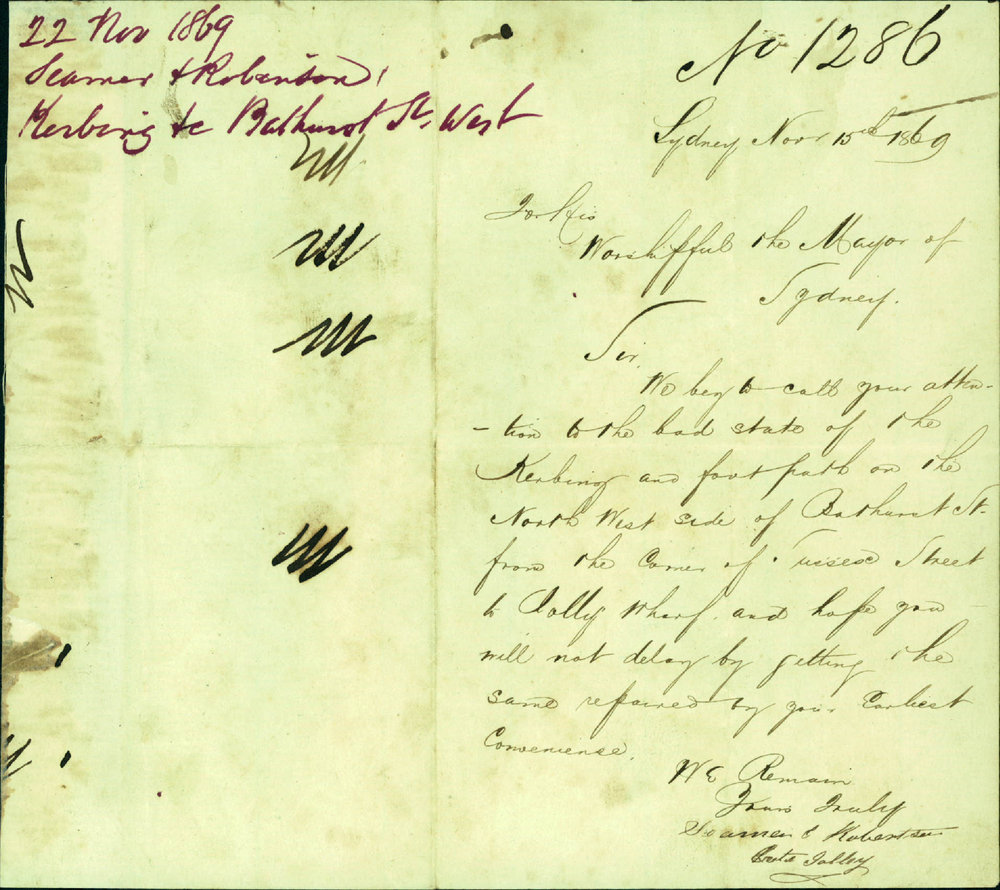 22 Nov 1869
Seamer & Robertson,
Kerbing &c Bathurst St. West
No 1286
Sydney Novr 15th 1869
For His
Worshipfful the Mayor of
Sydney.
Sir,
We beg to call your atten-
-tion to the bad state of the
Kerbing and foot path on the
North West side of Bathurst St.
from the Corner of Sussex Street
to Jolly Wharf. and hope you
will not delay by getting the
same repaired by your Earliest
Conveniense.
We Remain
Yours Truly
Seamer & Robertson